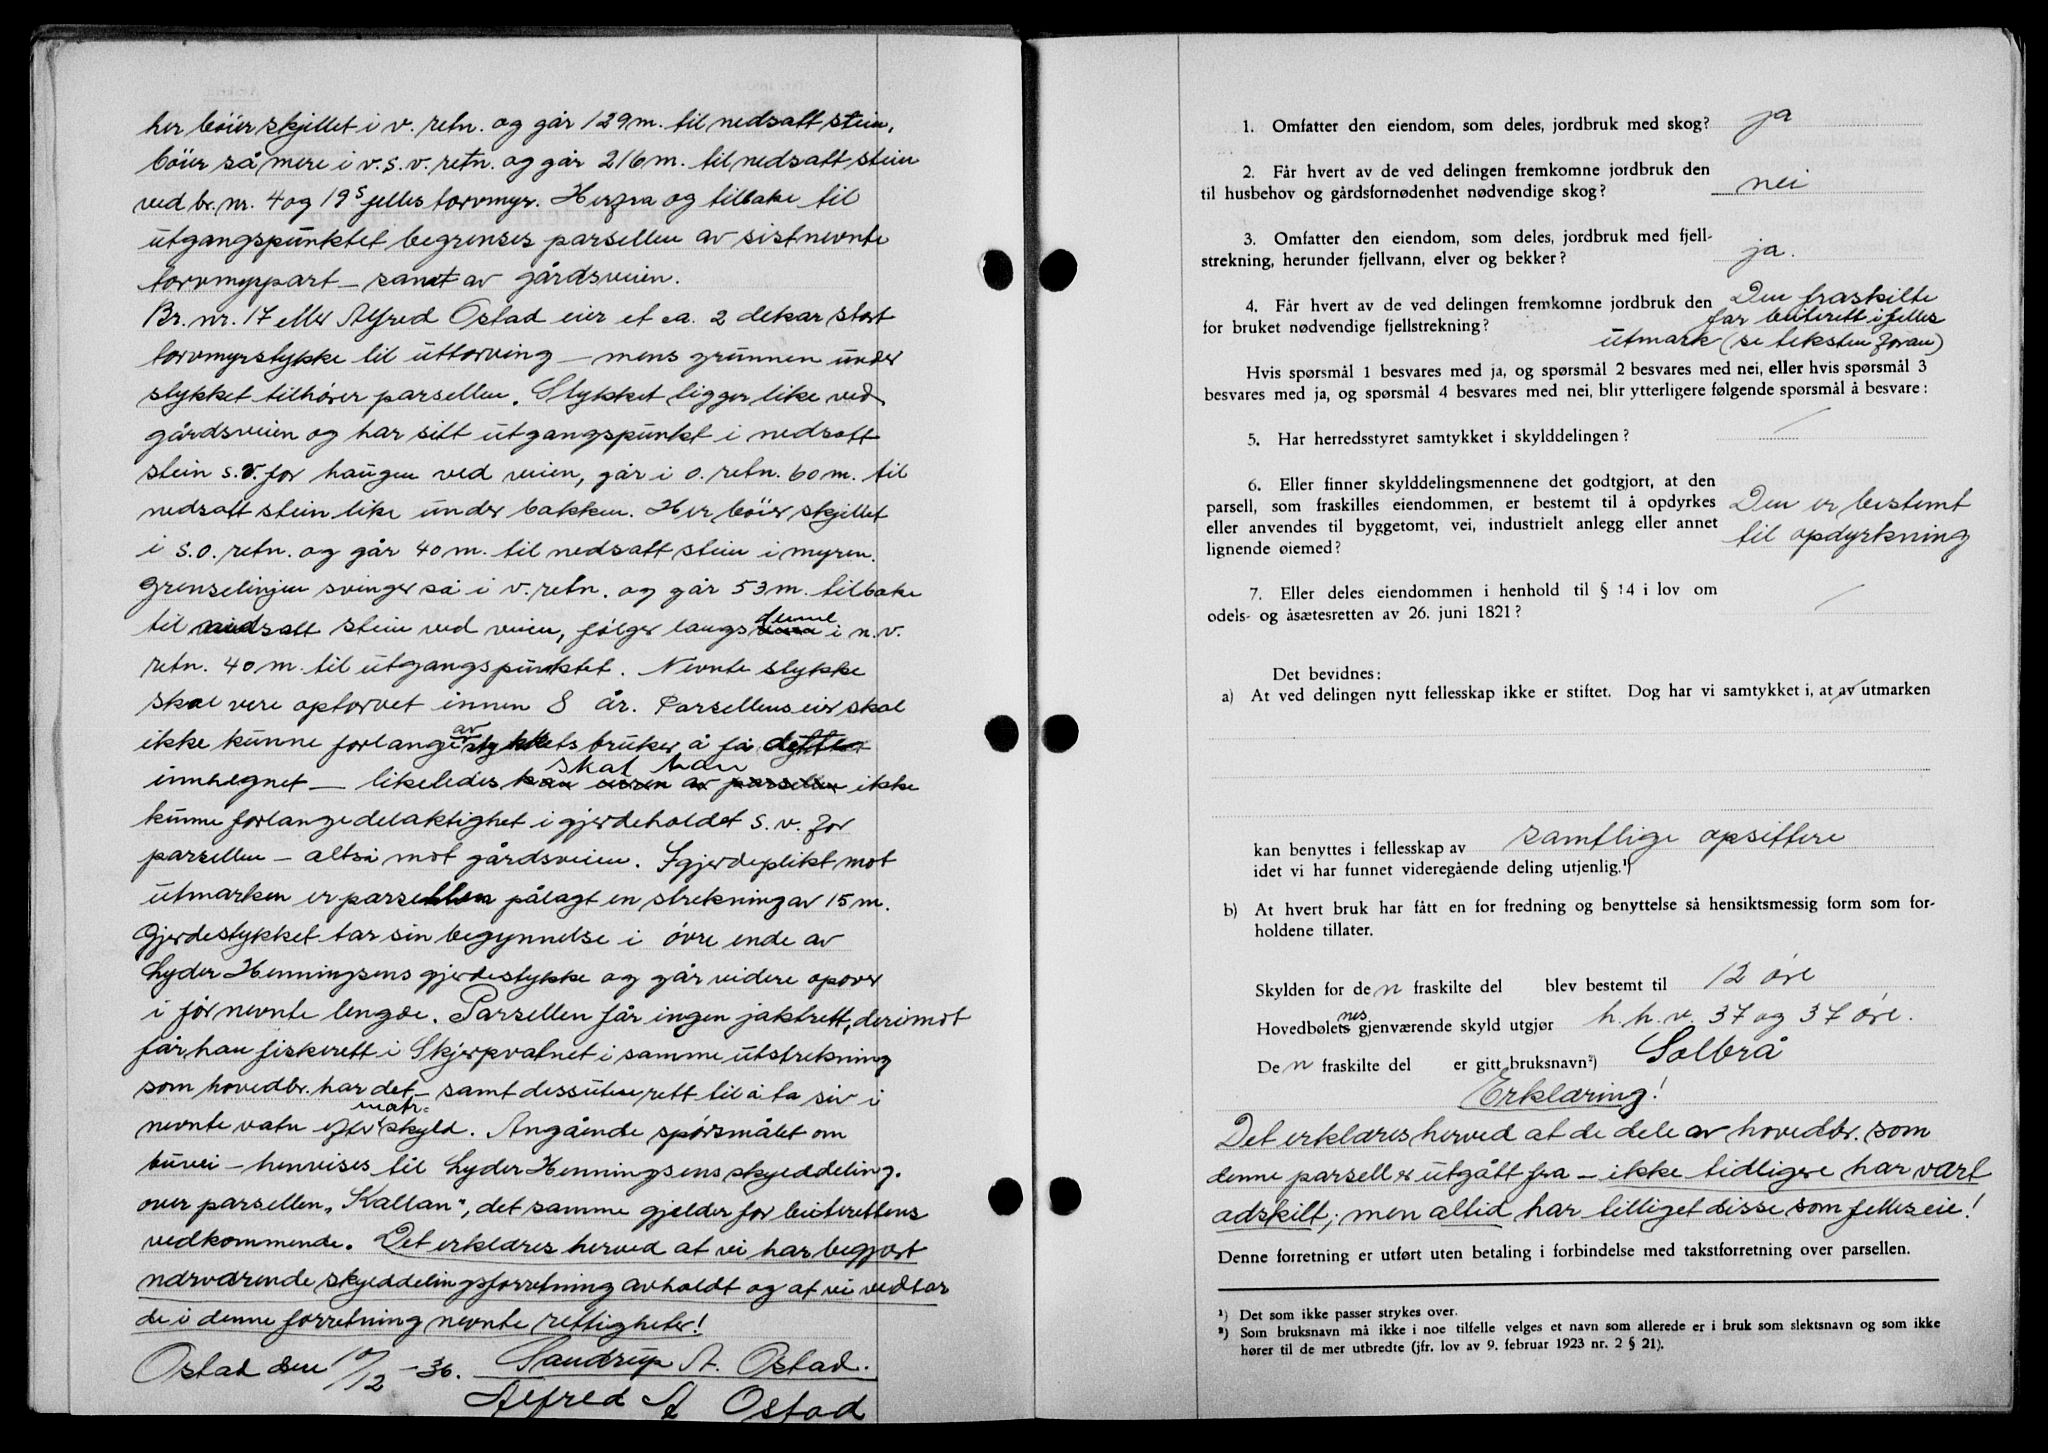 her bøier skjillet i v. retn. og går 129 m. til nedsatt stein,
bøier så mere i v.s.v. retn. og går 216 m. til nedsatt stein
ved br. nr. 4 og 19s felles torvmyr. Herfra og tilbake til
utgangspunktet begrenses parsellen av sistnevnte
torvmyrpart – samt av gårdsveien.
Br. nr. 17 eller Alfred Ostad eier et ca. 2 dekar stort
torvmyrstykke til uttorving – mens grunnen under
stykket tilhører parsellen. Stykket ligger like ved
gårdsveien og har sitt utgangspunkt i nedsatt
stein s.v. for haugen ved veien, går i o. retn. 60 m. til
nedsatt stein like under bakken. Her bøier skjillet
i s.o. retn. og går 40 m. til nedsatt stein i myren.
Grenselinjen svinger så i v. retn. og går 53 m. tilbake
til nedsatt stein ved veien, følger langs denne i n.v.
retn. 40 m. til utgangspunktet. Nevnte stykke
skal vere optorvet innen 8 år. Parsellens eier skal
ikke kunne forlange av stykkets bruker å få dette
innhegnet – likeledes skal han ikke
kunne forlange delaktighet i gjerdeholdet s.v. for
parsellen – altså mot gårdsveien. I gjerdeplikt mot
utmarken er parsellen pålagt en strekning av 15 m.
Gjerdestykket tar sin begynnelse i øvre ende av
Lyder Henningsens gjerdestykke og går videre opover
i før nevnte lengde. Parsellen får ingen jaktrett, derimot
får han fiskerett i Skjerpvatnet i samme utstrekning
som hovedbr. har det – samt dessuten rett til å ta siv i
nevnte vatn efter matr. skyld. Angående spørsmålet om
buvei – henvises til Lyder Henningsens skjeddeling
over parsellen „Kallan“, det samme gjelder for beiterettens
vedkommende. Det erklæres herved at vi har begjært
nærværende skjeddelingsforretning avholdt og at vi vedtar
de i denne forretning nevnte rettigheter!
Ostad den 10/12 – 36. Sandrup A. Ostad.
Alfred A Ostad
1. Omfatter den eiendom, som deles, jordbruk med skog? ja
2. Får hvert av de ved delingen fremkomne jordbruk den
til husbehov og gårdsfornødenhet nødvendige skog? nei
3. Omfatter den eiendom, som deles, jordbruk med fjell-
strekning, herunder fjellvann, elver og bekker? ja.
4. Får hvert av de ved delingen fremkomne jordbruk den Den fraskilte
for bruket nødvendige fjellstrekning? får beiterett i felles
utmark (se teksten foran)
Hvis spørsmål 1 besvares med ja, og spørsmål 2 besvares med nei, eller hvis spørsmål 3
besvares med ja, og spørsmål 4 besvares med nei, blir ytterligere følgende spørsmål å besvare:
5. Har herredsstyret samtykket i skylddelingen? /
6. Eller finner skylddelingsmennene det godtgjort, at den
parsell, som fraskilles eiendommen, er bestemt til å opdyrkes Den er bestemt
eller anvendes til byggetomt, vei, industrielt anlegg eller annet til opdyrkning
lignende øiemed?
7. Eller deles eiendommen i henhold til § 14 i lov om
odels- og åsætesretten av 26. juni 1821? /
Det bevidnes:
a) At ved delingen nytt fellesskap ikke er stiftet. Dog har vi samtykket i, at av utmarken
kan benyttes i fellesskap av samtlige opsittere
idet vi har funnet videregående deling utjenlig.¹)
b) At hvert bruk har fått en for fredning og benyttelse så hensiktsmessig form som for-
holdene tillater.
Skylden for den fraskilte del blev bestemt til 12 øre
Hovedbølenes gjenværende skyld utgjør h.h.v. 37 og 37 øre.
Den fraskilte del er gitt bruksnavn²) Solbrå
Erklæring!
Det erklæres herved at de dele av hovedbr. som
denne parsell er utgått fra – ikke tidligere har vært
adskilt; men altid har tilliget disse som felles eie!
Denne forretning er utført uten betaling i forbindelse med takstforretning over parsellen.
¹) Det som ikke passer strykes over.
²) Som bruksnavn må ikke i noe tilfelle velges et navn som allerede er i bruk som slektsnavn og som ikke
hører til de mer utbredte (jfr. lov av 9. februar 1923 nr. 2 § 21).